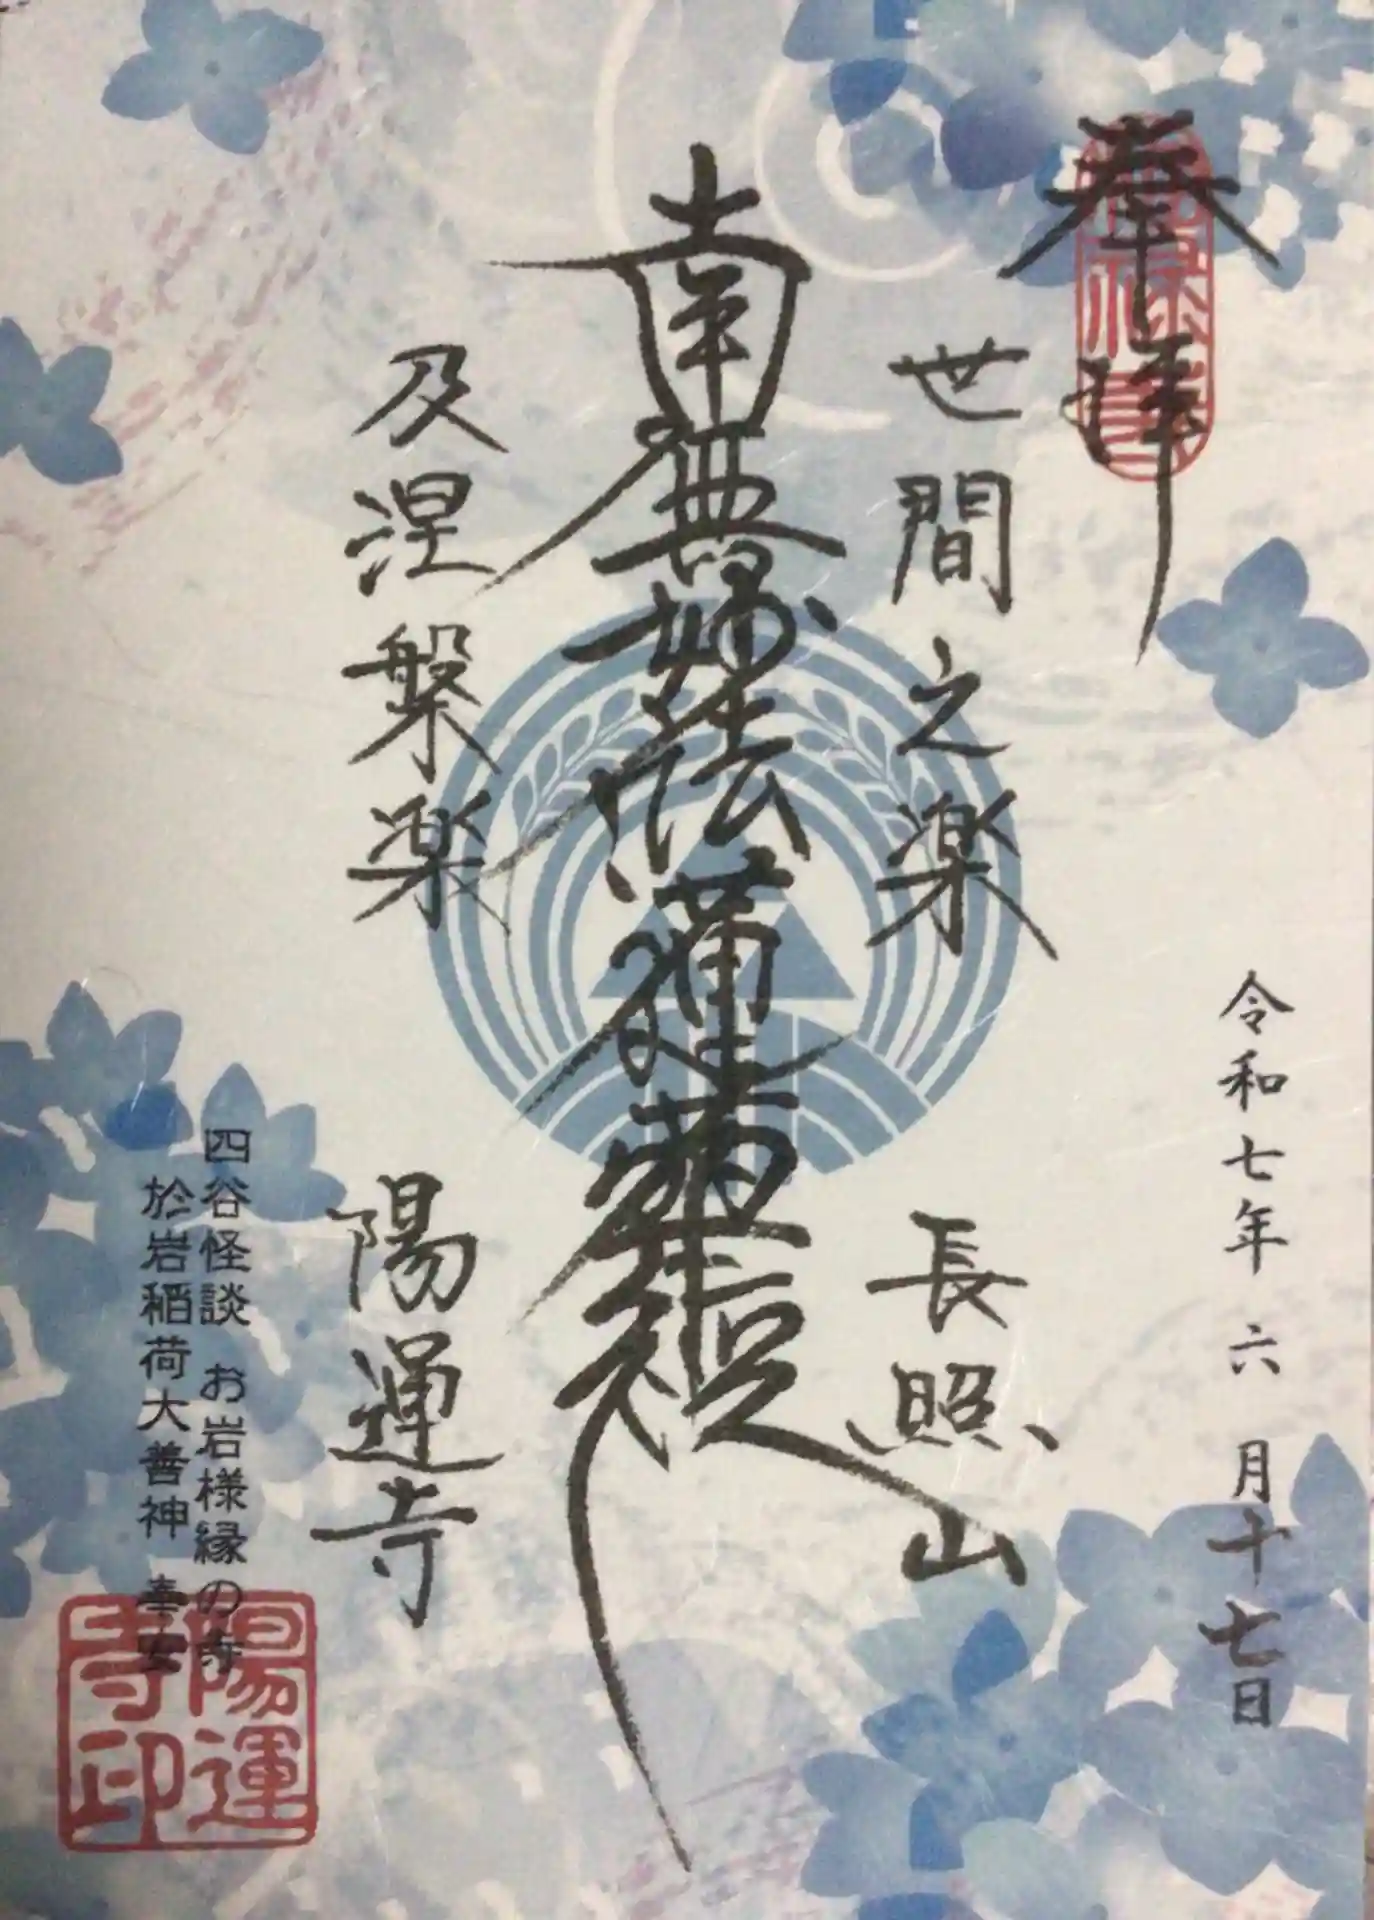 奉拝
令和七年六月十七日
世間之楽
長照山
南無妙法蓮華経
及涅槃楽
陽運寺
四谷怪談 お岩様縁の寺
於岩稲荷大善神 奉安
陽運
寺印